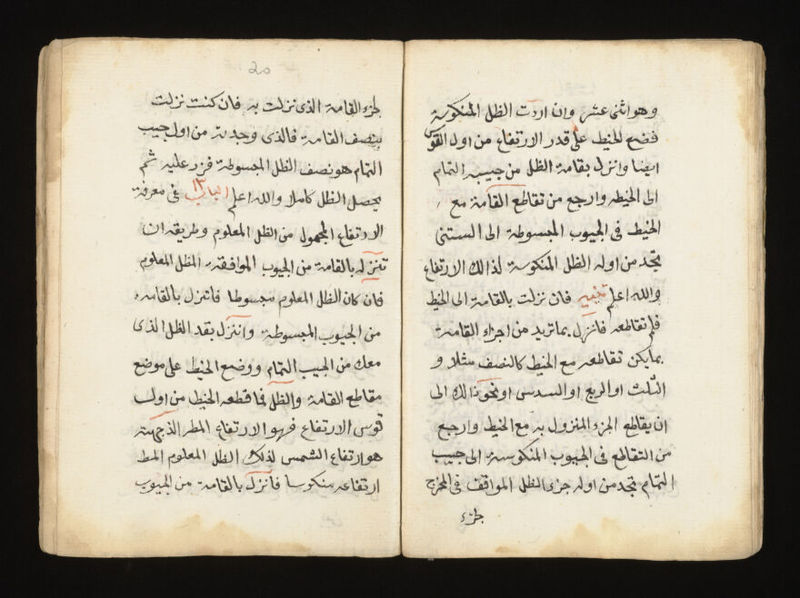 وهو اثنى عشر وان اردت الظل المنكوسة
فضع الخيط على قدر الارتفاع من اول القوس
ايضا وانزل بقامة الظل من جيبه التمام
الى الخيط وارجع من تقاطع القامة مع
الخيط فى الجيوب المبسوطة الى الستنى
تجد من اوله الظل المنكوسة لذالك الارتفاع
والله اعلم تنبيه فان نزلت بالقامة الى الخيط
فلم تقاطعه فانزل بما تريد من اجزاء القامة
بما يكن تقاطعه مع الخيط كالنصف مثلا و
الثلث او الربع او السدس او نحو ذالك الى
ان يقاطع الجزء المنزول به مع الخيط وارجع
من التقاطع فى الجيوب المنكوسة الى جيب
التمام تجد من اوله جزء الظل الموافق فى المخرج
لجزء
20
لجزء القامة الذى نزلت به فان كنت نزلت
بنصف القامة فالذى وجدته من اول جيب
التمام هو نصف الظل المبسوطة فزد عليه ثم
يحصل الظل كاملا والله اعلم الباب ١٣ فى معرفة
الارتفاع المجهول من الظل المعلوم وطريقه ان
تنزله بالقامة من الجيوب الموافقة الظل المعلوم
فان كان الظل المعلوم مبسوطا فانزل بالقامة
من الجيوب المبسوطة وانزل بقد الظل الذى
معك من الجيب التمام ووضع الخيط على موضع
مقاطع القامة والظل فما قطعه الخيط من اول
قوس الارتفاع فهو الارتفاع
هو ارتفاع الشمس لذلك الظل المعلوم
ارتفاعه منكوسا فانزل بالقامة من الجيوب